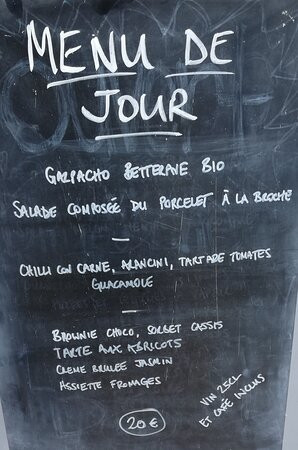 MENU DE
JOUR
GAZPACHO BETTERAVE BIO
SALADE COMPOSÉE DU PORCELET À LA BROCHE
—
CHILLI CON CARNE, ARANCINI, TARTARE TOMATES
GUACAMOLE
—
BROWNIE CHOCO, SORBET CASSIS
TARTE AUX ABRICOTS
CREME BRULEE JASMIN
ASSIETTE FROMAGES
VIN 25CL
ET CAFÉ INCLUS
20€